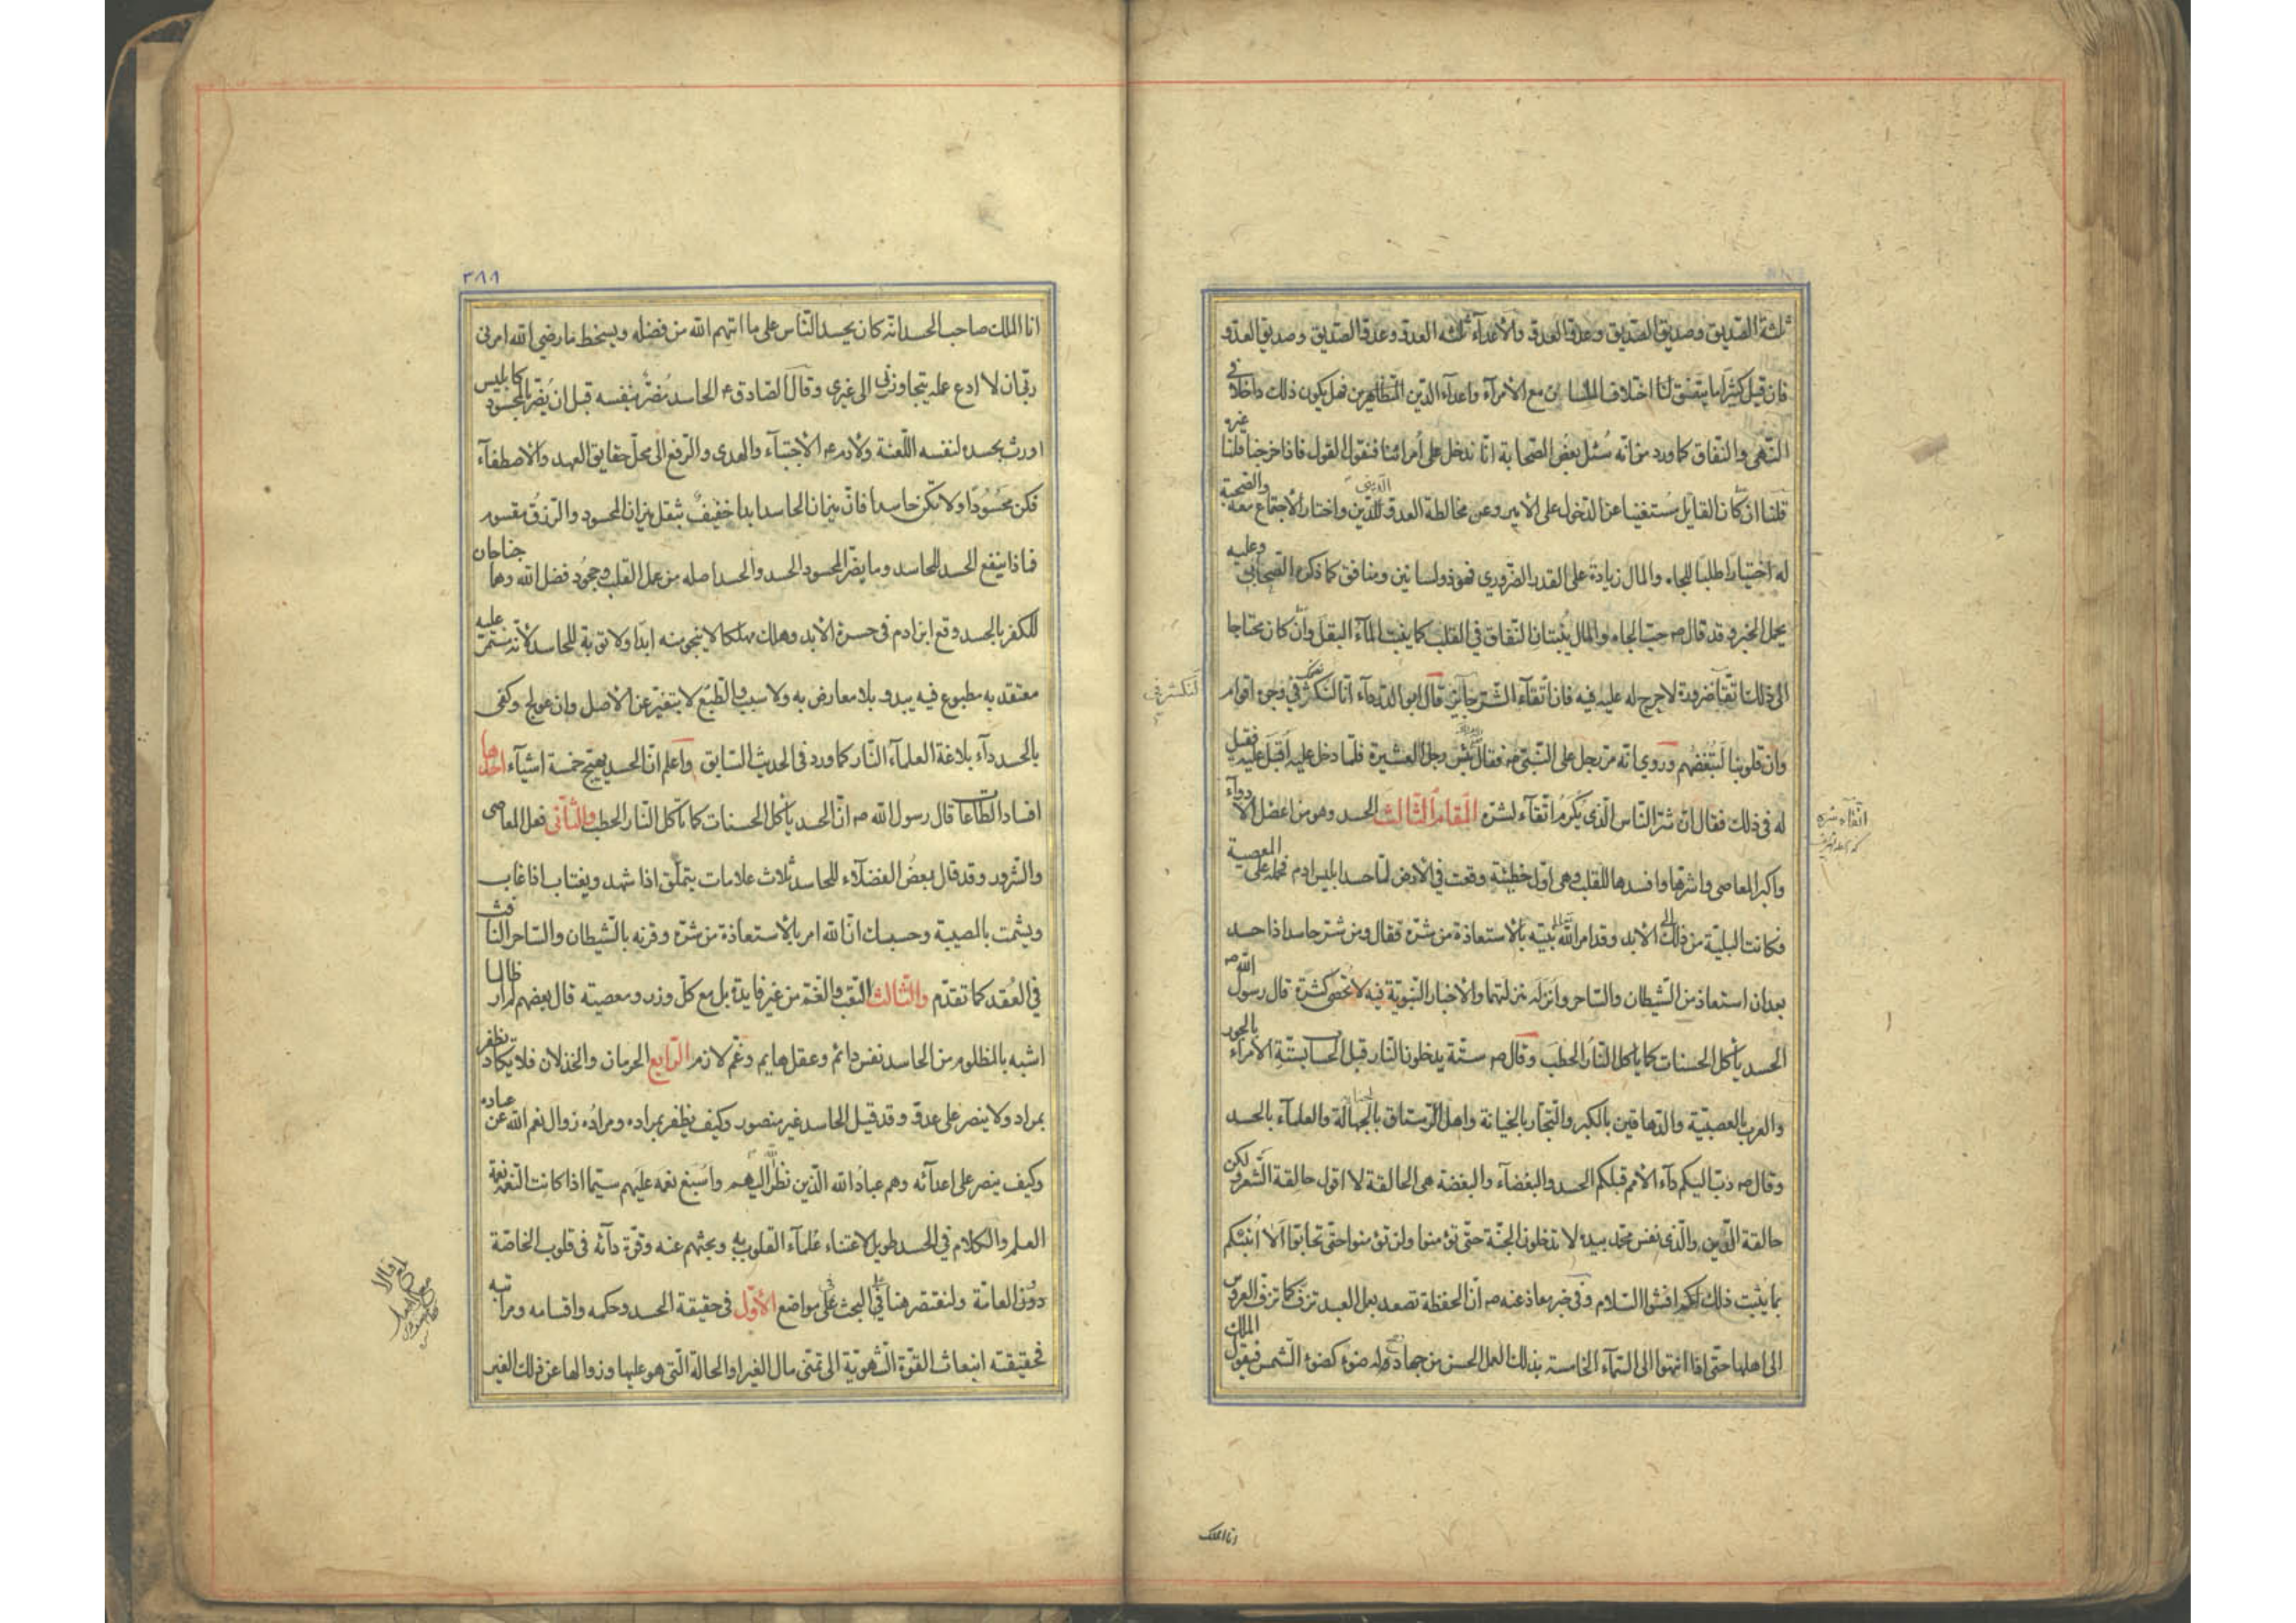 ثلثة الصّديق وصديق الصّديق وعدوّ العدوّ والأعدآء ثلثه العدوّ وعدوّ الصّديق وصديق العدوّ
فان قيل كثيرًا ما يتفق لنا اختلاف اللسانين مع الأمرآء واعدآء الدّين المتظاهرين فهل يكون ذلك داخلًا فى
النّهى والنّفاق كما ورد من انّه سُئل بعض الصّحابة انّا ندخل على أمرائنا فنقول القول فاذا خرجنا قلنا غيره
قلنا ان كان القايل مستغنيا عن الدّخول على الأمير وعن مخالطة العدوّ الدّينى واختار الأجتماع معه والصّحبة
له اختيارًا طلبًا للجاه والمال زيادة على القدر الضّرورى فهو ذو لسانين ومنافق كما ذكره الصّحابى وعليه
يحمل الخبر وقد قال ص حبّ الجاه والمال يُنبتان النّفاق فى القلب كما ينبت المآء البقل وان كان محتاجا
الى ذلك اتّقآء ضرورة لاحرج له عليه فيه فان اتّقآء الشّر جايز قال ابو الدّردآء انّا لنكشر فى وجوه اقوام
وان قلوبنا لتبغضهم وروى انّه مرّ رجل على النّبى ص فقال بئس رجل العشيرة فلمّا دخل عليه اقبل عليه فقيل
له فى ذلك فقال انّ شرّ النّاس الّذى يُكرم اتّقآء لشرّه المقام الثّالث الحسد وهو من اعضل الأدوآء
واكبر المعاصى واشرها وافسدها للقلب وهى اوّل خطيئة وقعت فى الأرض لمّا حسد ابليس ادم فحمله على المعصية
فكانت البليّة من ذلك الى الأبد وقد امر اللّه تعالى نبيّه بالأستعاذة من شرّه فقال ومن شرّ حاسد اذا حسد
بعد ان استعاذ من الشّيطان والسّاحر وانزله منزلتهما والأخبار النّبويّة فيه لا تحصى كثرة قال رسول اللّه ص
الحسد يأكل الحسنات كما يأكل النّار الحطب وقال ص ستّة يدخلون النّار قبل الحساب بستّة الأمرآء بالجور
والعرب بالعصبيّة والدّهاقين بالكبر والتّجار بالخيانة واهل الرّستاق بالجهالة والعلمآء بالحسد
وقال ص دبّ اليكم دآء الأمم قبلكم الحسد والبغضآء والبغضة هى الحالقة لا اقول حالقة الشّعر ولكن
حالقة الدّين والّذى نفس محمّد بيده لا تدخلون الجنّة حتّى تؤمنوا ولن تؤمنوا حتّى تحابّوا ألا أنبئكم
بما يثبت ذلك لكم افشوا السّلام وفى خبر معاذ عنه ص انّ الحفظة تصعد بعمل العبد تزفّ كما تزفّ العروس
الى اهلها حتّى اذا انتهوا الى السّمآء الخامسة بذلك العمل الحسن من جهاد له ضوء كضوء الشّمس فيقول الملك
لنكشر فى
اتقآء شره
انا الملك
٣٨٨
انا الملك صاحب الحسد انّه كان يحسد النّاس على ما اتيهم اللّه من فضله ويسخط ما رضى اللّه امرنى
ربّى ان لا ادع عمله يتجاوزنى الى غيرى وقال الصّادق ع الحاسد مُضرّ بنفسه قبل ان يُضرّ بالمحسود كابليس
اورث بحسده لنفسه اللّعنة ولأدم ع الأجتبآء والهدى والرّفع الى محلّ حقايق العهد والأصطفآء
فكن محسُودًا ولا تكن حاسدا فانّ ميزان الحاسد ابدا خفيف بثقل ميزان المحسود والرّزق مقسوم
فماذا ينفع الحسد الحاسد وما يضرّ المحسود الحسد والحسد اصله من عمل القلب وجحود فضل اللّه وهما جناحان
للكفر بالحسد وقع ابن ادم فى حسرة الأبد وهلك مهلكا لا ينجو منه ابدًا ولا توبة للحاسد لأنّه مستمرّ عليه
معتقد به مطبوع فيه يبدو بلا معارض به ولا سبب والطّبع لا يتغيّر عن الأصل وان عولج وكفى
بالحسد دآء بلاغة العلمآء النّار كما ورد فى الحديث السّابق واعلم انّ الحسد يهيّج خمسة اشيآء احدها
افساد الطّاعات قال رسول اللّه ص انّ الحسد يأكل الحسنات كما تأكل النّار الحطب والثّانى فعل المعاصى
والشّرور وقد قال بعض الفضلآء للحاسد ثلاث علامات يتملّق اذا شهد ويغتاب اذا غاب
ويشمت بالمصيبة وحسبك انّ اللّه امر بالأستعاذة من شرّه وقرنه بالشّيطان والسّاحر النّافث
فى العُقد كما تقدّم والثّالث التّعب والغمّ من غير فايدة بل مع كلّ وزر ومعصيته قال بعضهم لم ار ظالما
اشبه بالمظلوم من الحاسد نفس دائم وعقل هايم وغمّ لازم الرّابع الحرمان والخذلان فلا يكاد يظفر
بمراد ولا ينصر على عدوّ وقد قيل الحاسد غير منصور وكيف يظفر بمراده ومراده زوال نعم اللّه عن عباده
وكيف ينصر على اعدآئه وهم عبادُ اللّه الّذين نظر اللّه اليهم واسبغ نعمه عليهم سيّما اذا كانت النّعم نعمة
العلم والكلام فى الحسد طويل لاعتناء عُلمآء القلوب به وبحثهم عنه وقوّة دآئه فى قلوب الخاصّة
دون العامّة ولنقتصر هنا فى البحث على مواضع الأوّل فى حقيقة الحسد وحكمه واقسامه ومراتبه
فحقيقته انبعاث القوّة الشّهويّة الى تمنّى مال الغير او الحالة الّتى هو عليها وزوالها عن ذلك الغير